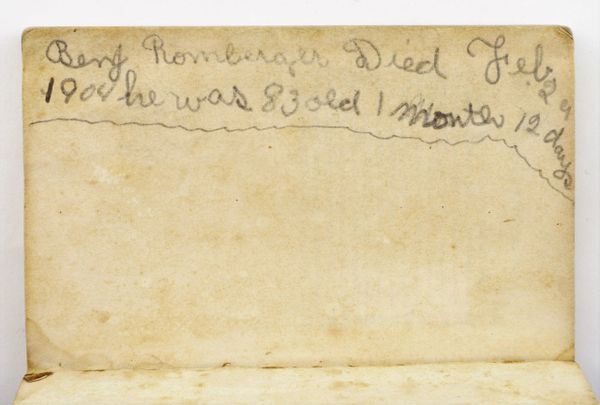 Benj Romberger Died Feb. 24
1904 he was 83 old 1 Month 12 days